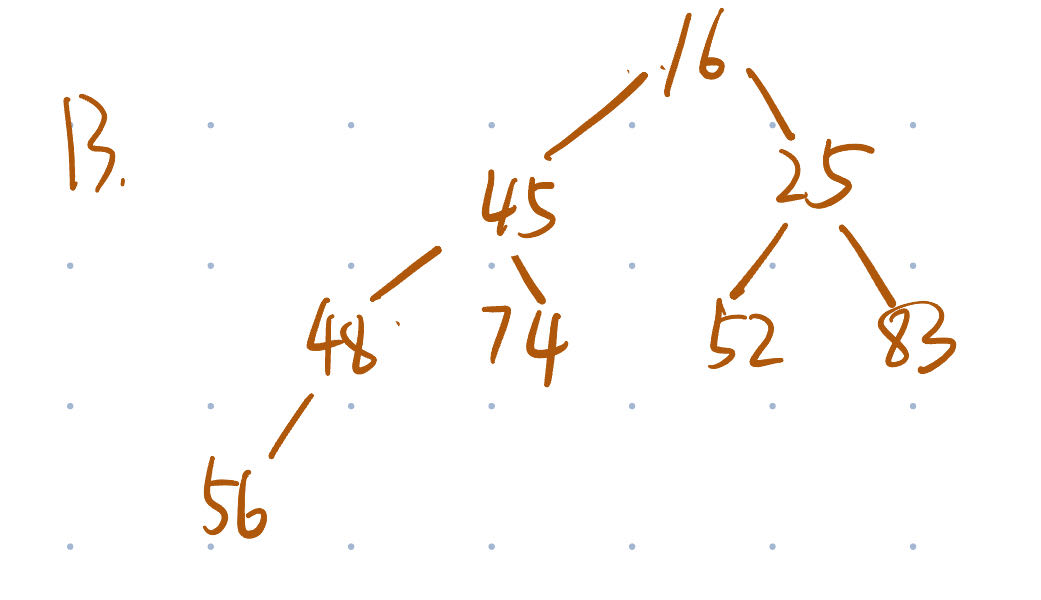 16
B.
45 25
48 74 52 83
56